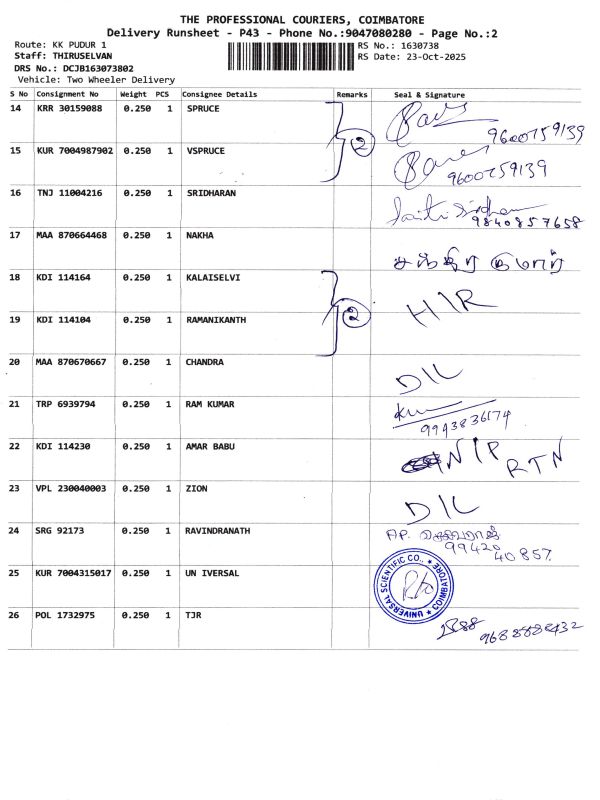 THE PROFESSIONAL COURIERS, COIMBATORE
Delivery Runsheet - P43 - Phone No.:9047080280 - Page No.:2
Route: KK PUDUR 1
RS No.: 1630738
Staff: THIRUSELVAN
RS Date: 23-Oct-2025
DRS No.: DCJB163073802
Vehicle: Two Wheeler Delivery
S No Consignment No Weight PCS Consignee Details Remarks Seal & Signature
14 KRR 30159088 0.250 1 SPRUCE 9600759139
2
15 KUR 7004987902 0.250 1 VSPRUCE 9600759139
16 TNJ 11004216 0.250 1 SRIDHARAN
9840857658
17 MAA 870664468 0.250 1 NAKHA
18 KDI 114164 0.250 1 KALAISELVI
H/R
2
19 KDI 114104 0.250 1 RAMANIKANTH
20 MAA 870670667 0.250 1 CHANDRA
D/L
21 TRP 6939794 0.250 1 RAM KUMAR
9943836174
22 KDI 114230 0.250 1 AMAR BABU
N/P RTN
23 VPL 230040003 0.250 1 ZION
D/L
24 SRG 92173 0.250 1 RAVINDRANATH AP.
99420
40857
25 KUR 7004315017 0.250 1 UN IVERSAL
UNIVERSAL SCIENTIFIC CO., COIMBATORE
26 POL 1732975 0.250 1 TJR